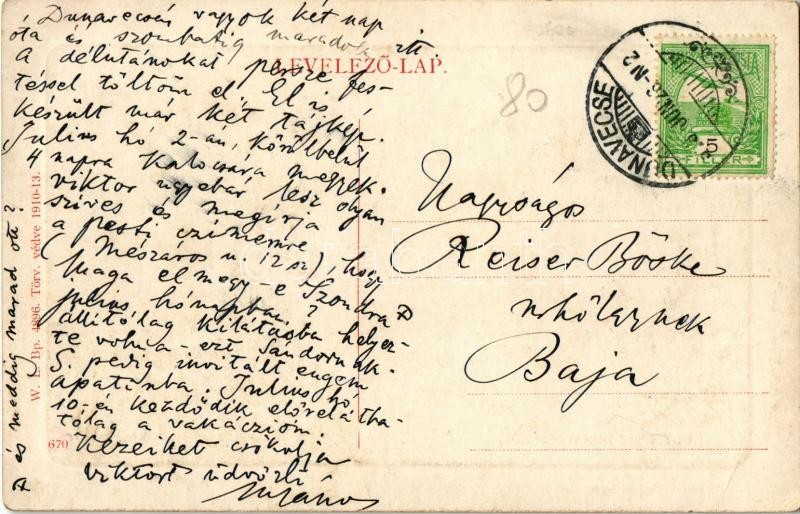 Dunavecsén vagyok két nap
óta és szombatig maradok itt.
A délutánokat persze fes-
téssel töltöm el. El is
készült már két tájkép.
Julius hó 2-án, körülbelül
4 napra Kalocsára megyek.
Viktor ugyebár lesz olyan
szives és megirja
a pesti czimemre
(Mészáros u. 12 sz), hogy
Maga elmegy-e Szondra
julius hónapban?
állitólag kilátásba helyez-
te volna - ezt Sándornak.
S. pedig invitált engem
Apatinba. Julius hó
10-én kezdődik előrelátha-
tólag a vakáczióm.
Kezeiket csókolja
Viktort üdvözli
János
és meddig marad ott?
W. L. Bp. 4896. Törv. védve 1910-13.
670
LEVELEZŐ-LAP.
80
DUNAVECSE
5
FILLÉR
Nagyságos
Reiser Böske
urhölgynek
Baja